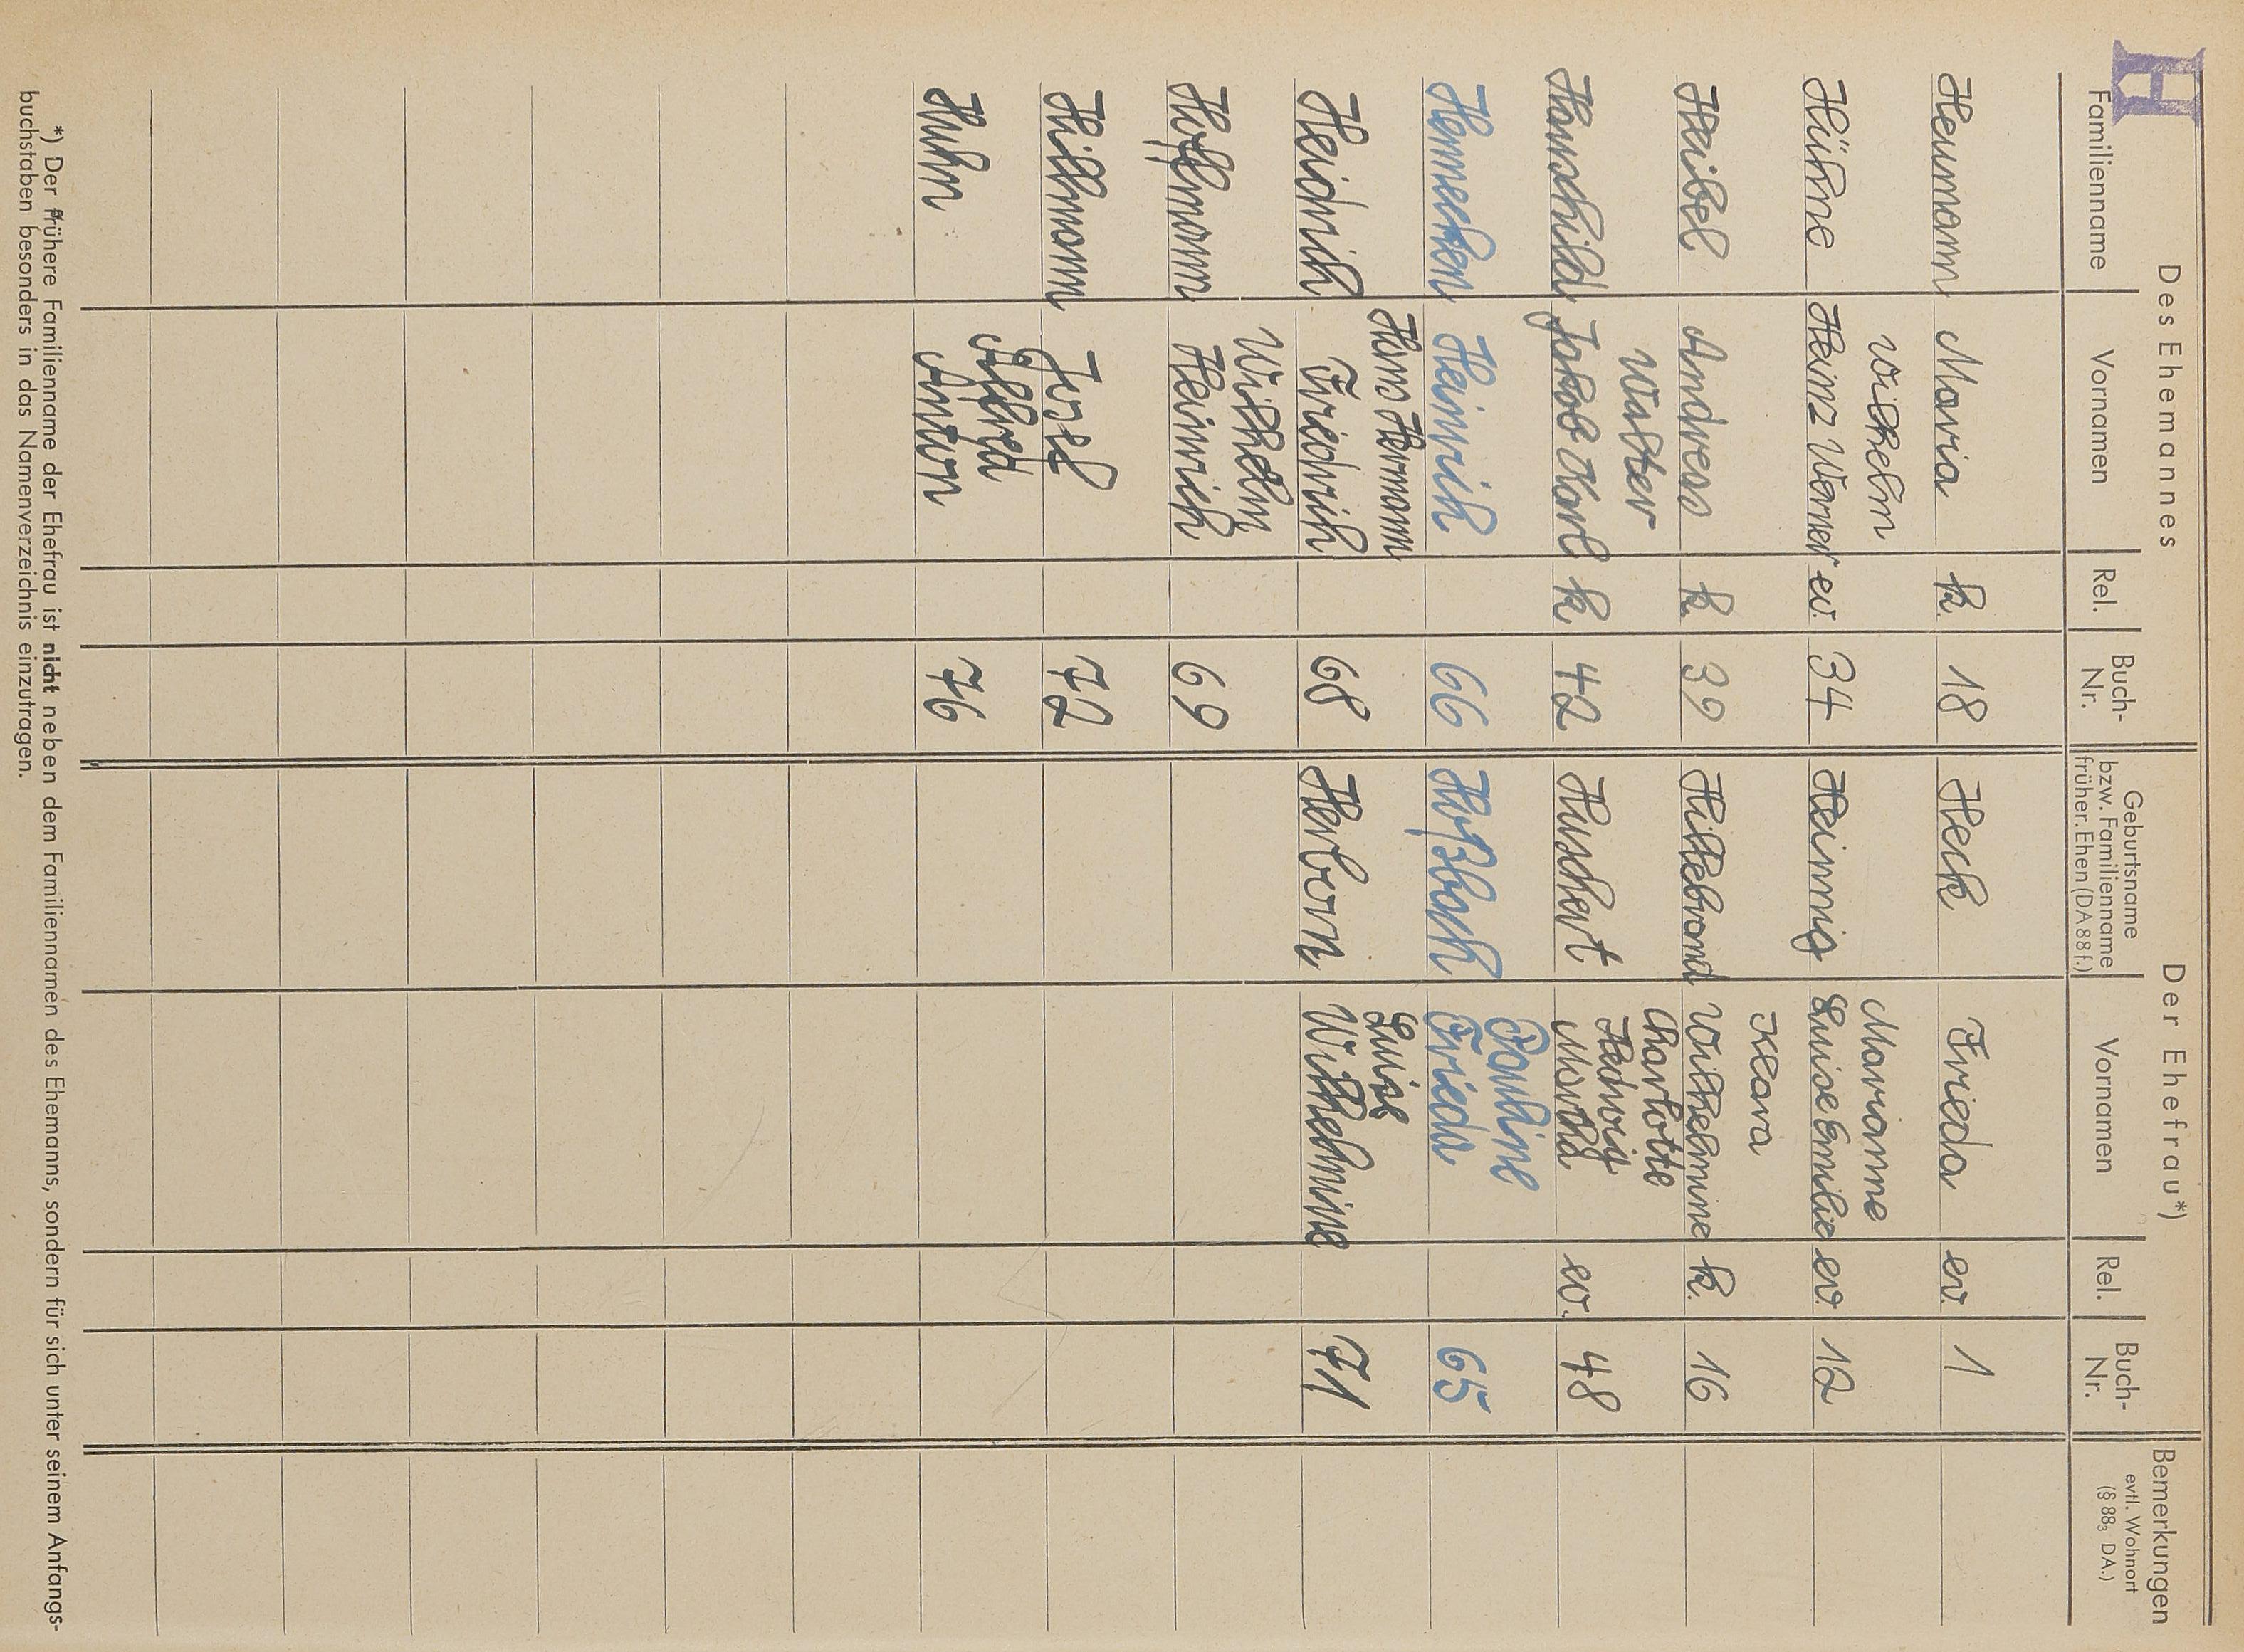 H
Des Ehemannes Der Ehefrau*) Bemerkungen
evtl. Wohnort
(§ 88₃ DA.)
Familienname Vornamen Rel. Buch-
Nr. Geburtsname
bzw. Familienname
früher. Ehen (DA 88 f.) Vornamen Rel. Buch-
Nr.
Heumann Maria k. 18 Heck Frieda ev. 1
Wilhelm Marianne
Hühne Heinz Werner ev. 34 Heinnig Luise Emilie ev. 12
Klara
Heibel Andreas k 39 Hillebrand Wilhelmine k. 16
Walter Charlotte
Hedwig
Hauschild Jakob Karl k 42 Huschert Martha ev. 48
Pauline
Hennecken Heinrich 66 Hoßbach Frieda 65
Hans Hermann Luise
Heidrich Friedrich 68 Herborn Wilhelmine 71
Wilhelm
Hoffmann Heinrich 69
Hillmann Josef 72
Alfred
Huhn Anton 76
*) Der frühere Familienname der Ehefrau ist nicht neben dem Familiennamen des Ehemanns, sondern für sich unter seinem Anfangs-
buchstaben besonders in das Namenverzeichnis einzutragen.